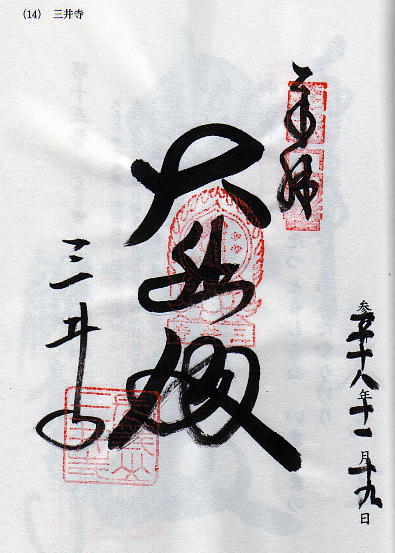 (14) 三井寺
奉拝
大悲殿
三井寺
十八年十一月十九日